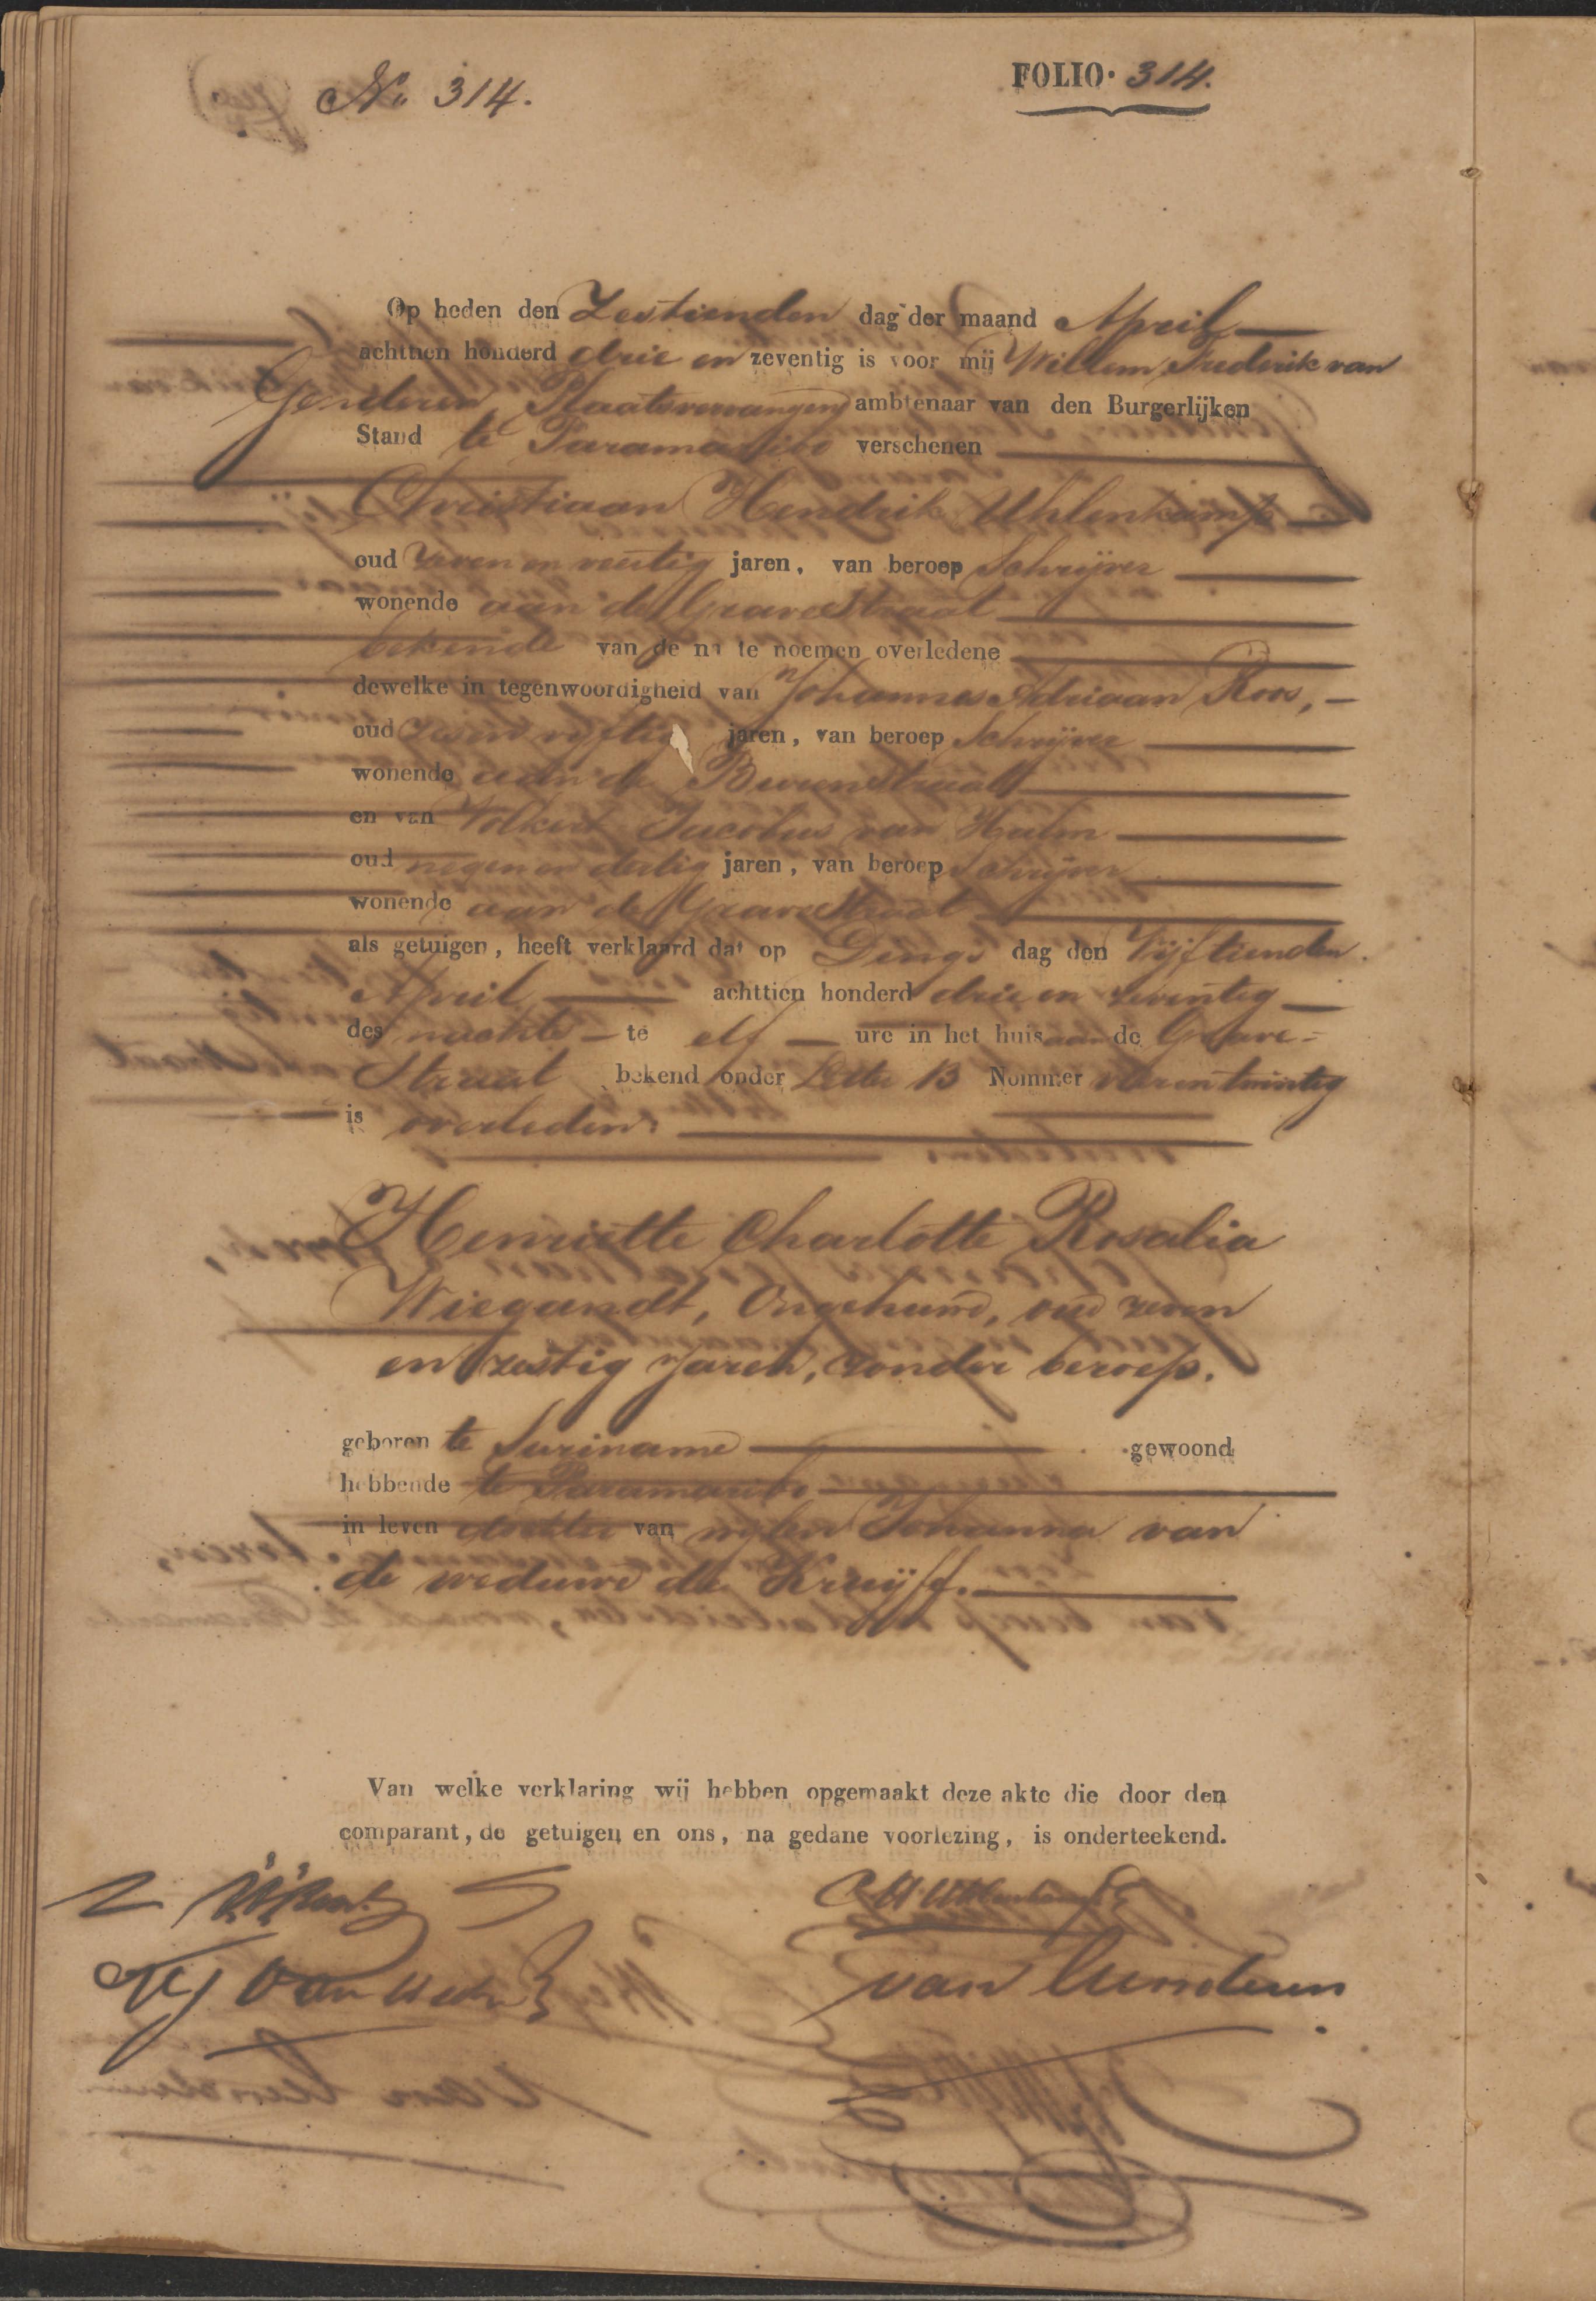 No 314.
FOLIO. 314.
Op heden den Zestienden dag der maand April
achttien honderd drie en zeventig is voor mij Willem Frederik van
Genderen, Plaatsvervangend ambtenaar van den Burgerlijken
Stand te Paramaribo verschenen
Christiaan Hendrik Uhlenkamp
oud zeven en veertig jaren, van beroep Schrijver
wonende aan de Gravestraat
bekende van de na te noemen overledene
dewelke in tegenwoordigheid van Johannes Adriaan Roos,
oud zes en vijftig jaren, van beroep Schrijver
wonende aan de straat
en van Volkert Jacobus van Halm
oud negen en dertig jaren, van beroep Schrijver
wonende aan de Gravestraat
als getuigen, heeft verklaard dat op Dings dag den Vijftienden
April achttien honderd drie en zeventig
des nachts te elf ure in het huis aan de Grave-
Straat bekend onder Letter B Nommer vier en twintig
is overleden:
Henriette Charlotte Rosalia
Wiegandt, Ongehuwd, oud zeven
en zestig Jaren, zonder beroep.
geboren te Suriname gewoond
hebbende te Paramaribo
in leven dochter van wijlen Johanna van
de weduwe de Kruijff.
Van welke verklaring wij hebben opgemaakt deze akte die door den
comparant, de getuigen en ons, na gedane voorlezing, is onderteekend.
C H Uhlenkamp
van Genderen